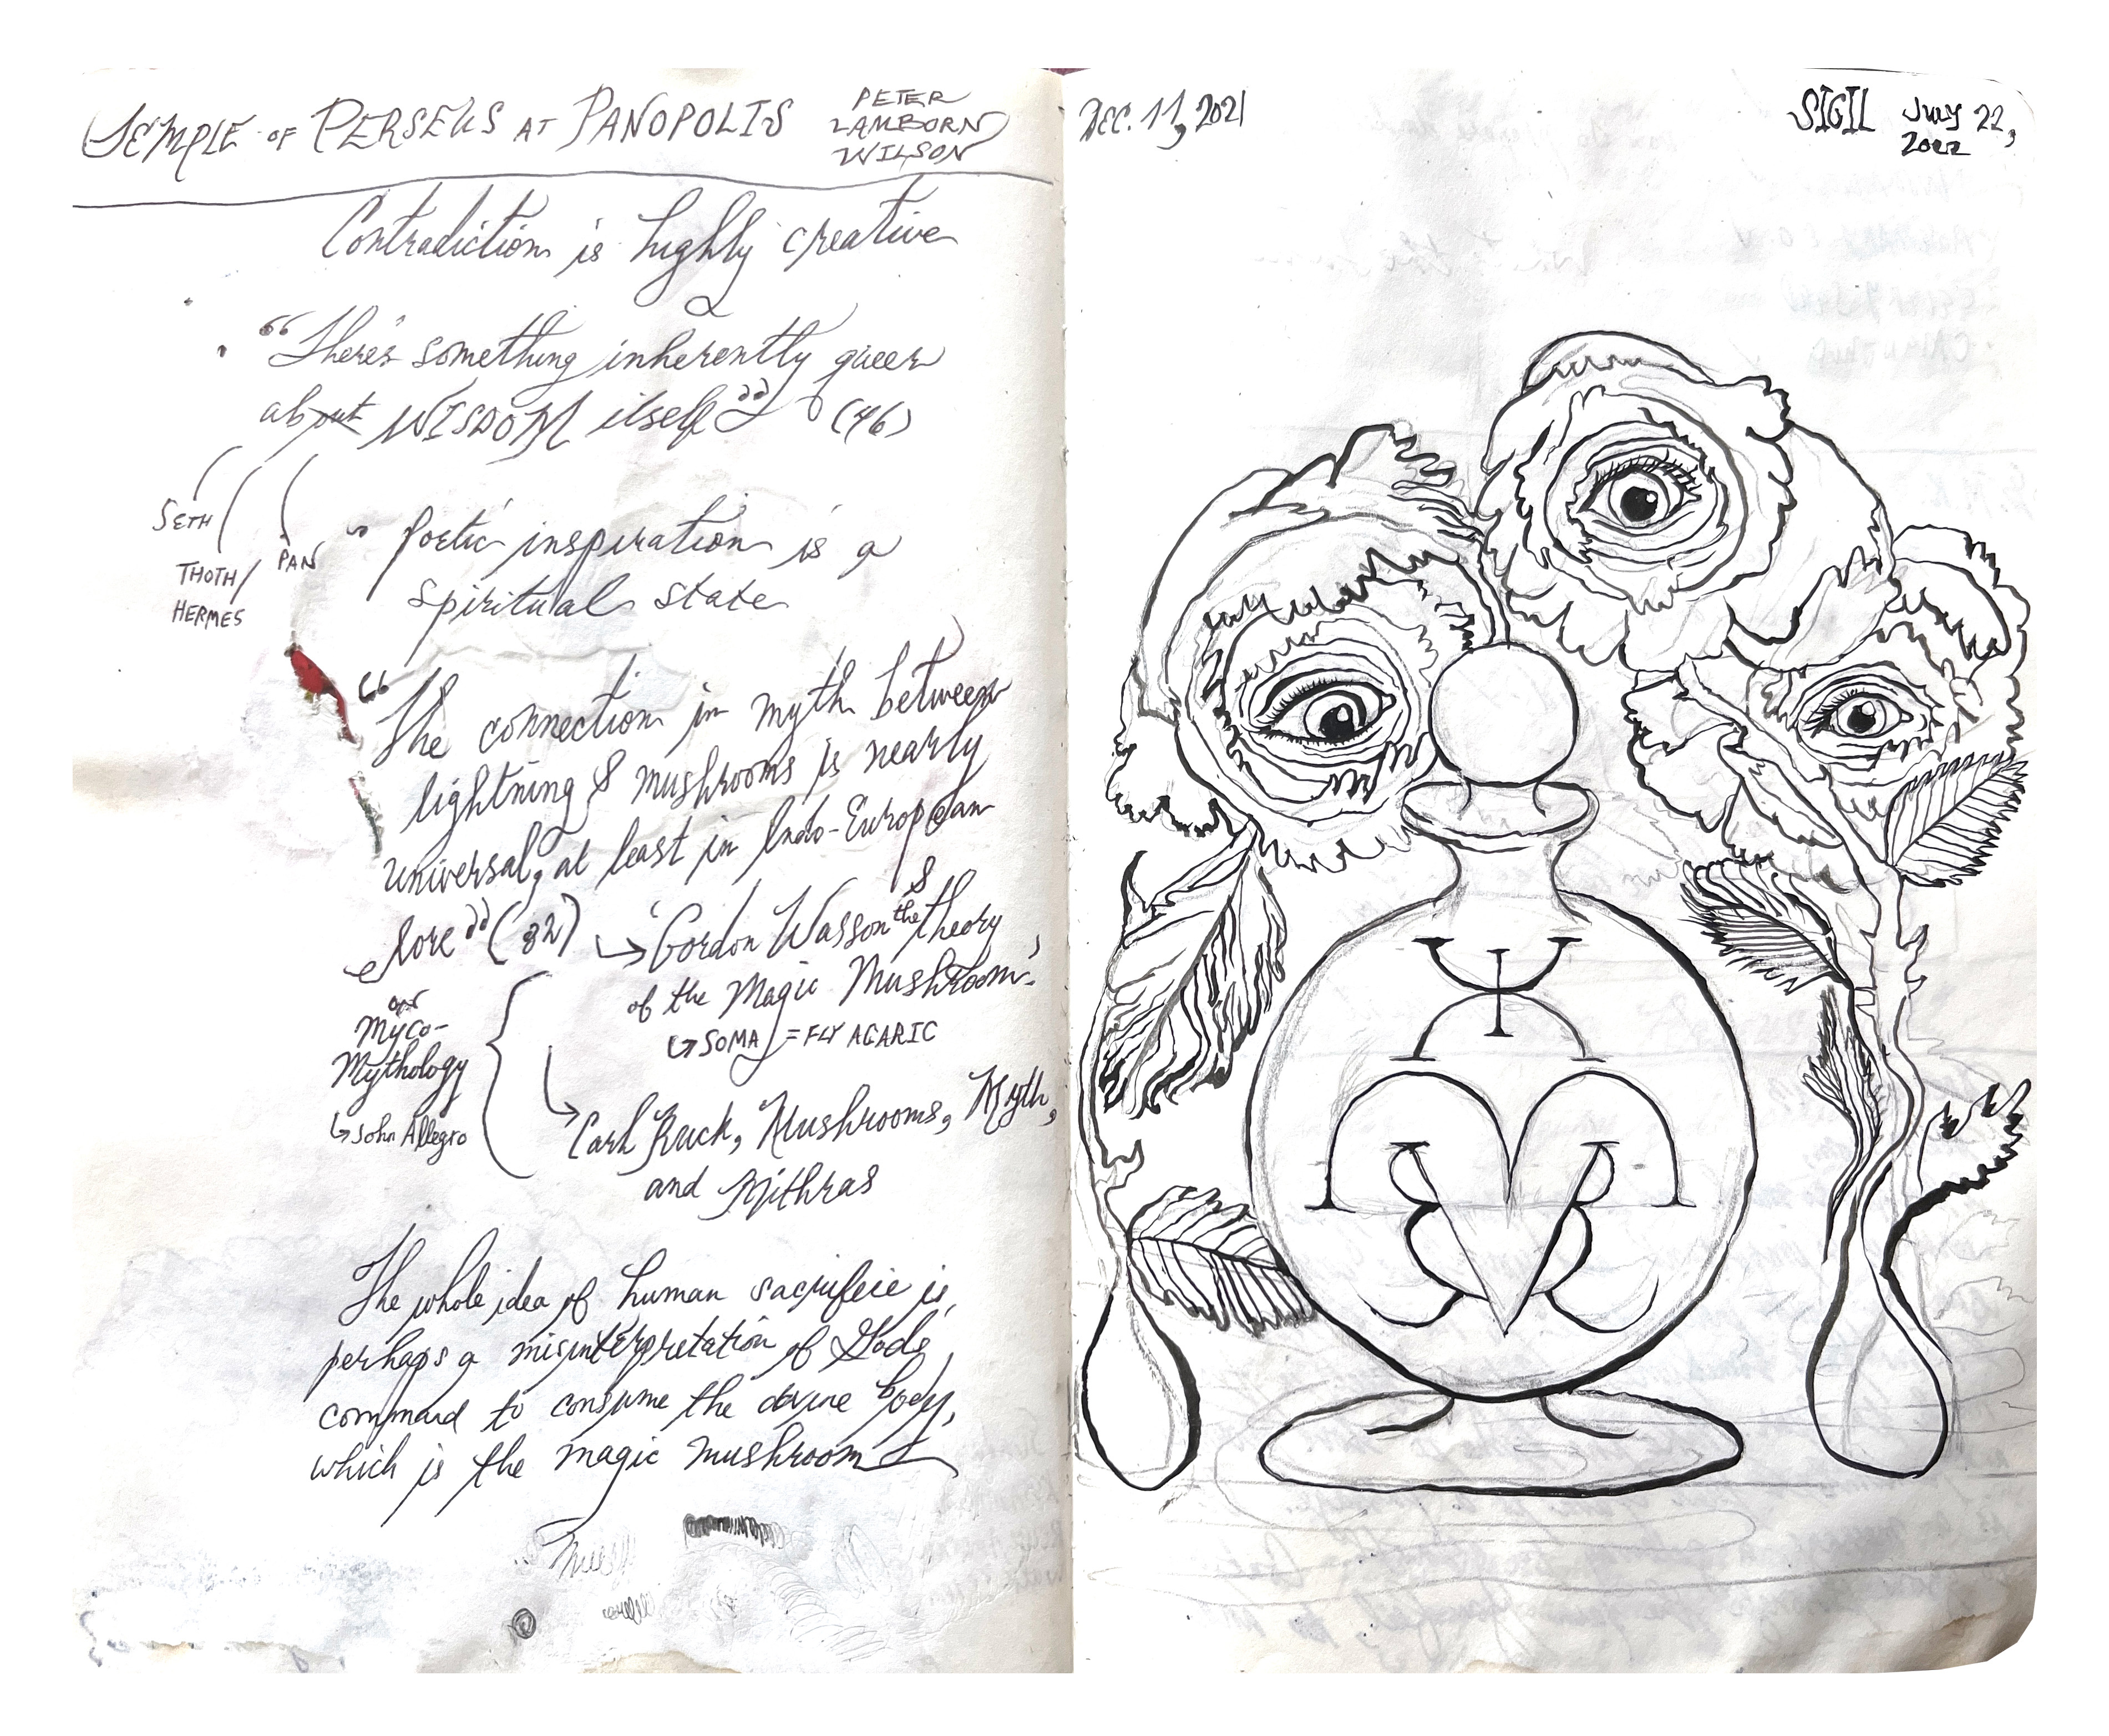 TEMPLE OF PERSEUS AT PANOPOLIS
PETER
LAMBORN
WILSON
Contradiction is highly creative
"There's something inherently queer
about WISDOM itself" (46)
SETH
THOTH/
HERMES
PAN
Poetic inspiration is a
spiritual state
"The connection in myth between
lightning & mushrooms is nearly
universal, at least in Indo-European
lore" (82)
Gordon Wasson & the theory
of the Magic Mushroom
SOMA = FLY AGARIC
or
Myco-
Mythology
John Allegro
Carl Ruck, Mushrooms, Myth,
and Mithras
The whole idea of human sacrifice is,
perhaps a misinterpretation of Gods
command to consume the divine body,
which is the magic mushroom
DEC. 11, 2021
SIGIL
July 22,
2022